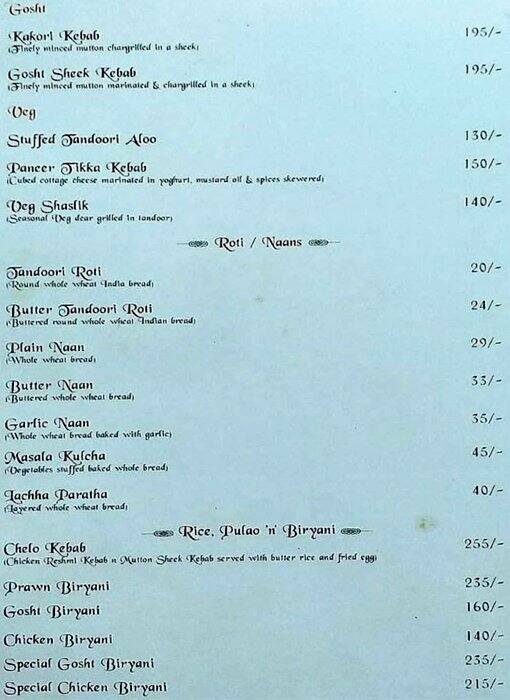 Gosht
Kakori Kebab 195/-
(Finely minced mutton chargrilled in a sheek)
Gosht Sheek Kebab 195/-
(Finely minced mutton marinated & chargrilled in a sheek)
Veg
Stuffed Tandoori Aloo 130/-
Paneer Tikka Kebab 150/-
(Cubed cottage cheese marinated in yoghurt, mustard oil & spices skewered)
Veg Shaslik 140/-
(Seasonal Veg dear grilled in tandoor)
Roti / Naans
Tandoori Roti 20/-
(Round whole wheat India bread)
Butter Tandoori Roti 24/-
(Buttered round whole wheat Indian bread)
Plain Naan 29/-
(Whole wheat bread)
Butter Naan 33/-
(Buttered whole wheat bread)
Garlic Naan 35/-
(Whole wheat bread baked with garlic)
Masala Kulcha 45/-
(Vegetables stuffed baked whole bread)
Lachha Paratha 40/-
(Layered whole wheat bread)
Rice, Pulao 'n' Biryani
Chelo Kebab 255/-
(Chicken Reshmi Kebab n Mutton Sheek Kebab served with butter rice and fried egg)
Prawn Biryani 235/-
Gosht Biryani 160/-
Chicken Biryani 140/-
Special Gosht Biryani 235/-
Special Chicken Biryani 215/-